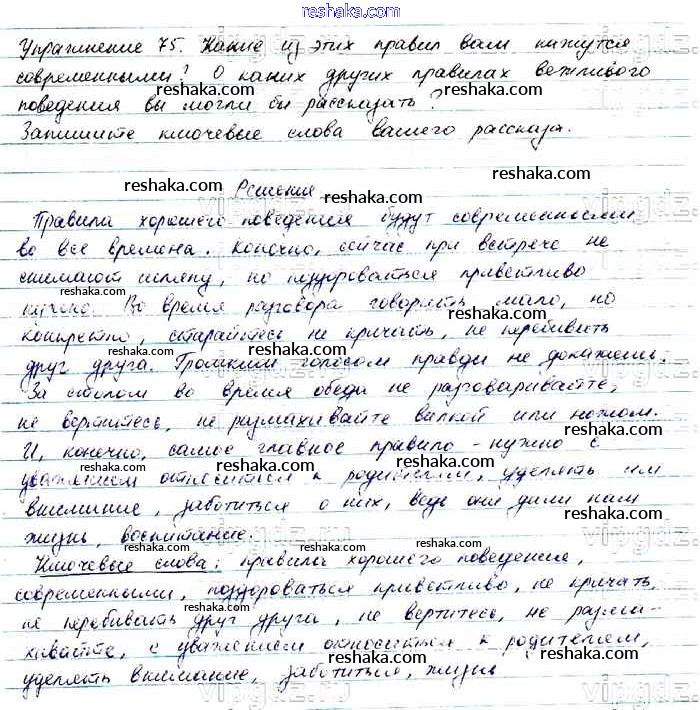 reshaka.com
Упражнение 75. Какие из этих правил вам кажутся
современными? О каких других правилах вежливого
reshaka.com reshaka.com
поведения вы могли бы рассказать?
Запишите ключевые слова вашего рассказа.
reshaka.com Решение reshaka.com
Правила хорошего поведения будут современными
во все времена. Конечно, сейчас при встрече не
reshaka.com reshaka.com
снимают шляпу, но поздороваться приветливо
нужно. Во время разговора говорить мало, но
reshaka.com
конкретно, старайтесь не кричать, не перебивать
reshaka.com reshaka.com
друг друга. Громким голосом правды не докажешь.
За столом во время обеда не разговаривайте,
reshaka.com reshaka.com
не вертитесь, не размахивайте вилкой или ножом.
И, конечно, самое главное правило - нужно с
reshaka.com reshaka.com
уважением относиться к родителям, уделять им
внимание, заботиться о них, ведь они дали нам
reshaka.com
жизнь, воспитание.
reshaka.com reshaka.com
Ключевые слова: правила хорошего поведения,
современными, поздороваться приветливо, не кричать,
reshaka.com reshaka.com
не перебивать друг друга, не вертитесь, не разма-
хивайте, с уважением относиться к родителям,
reshaka.com reshaka.com
уделять внимание, заботиться, жизнь
vipgdz.ru